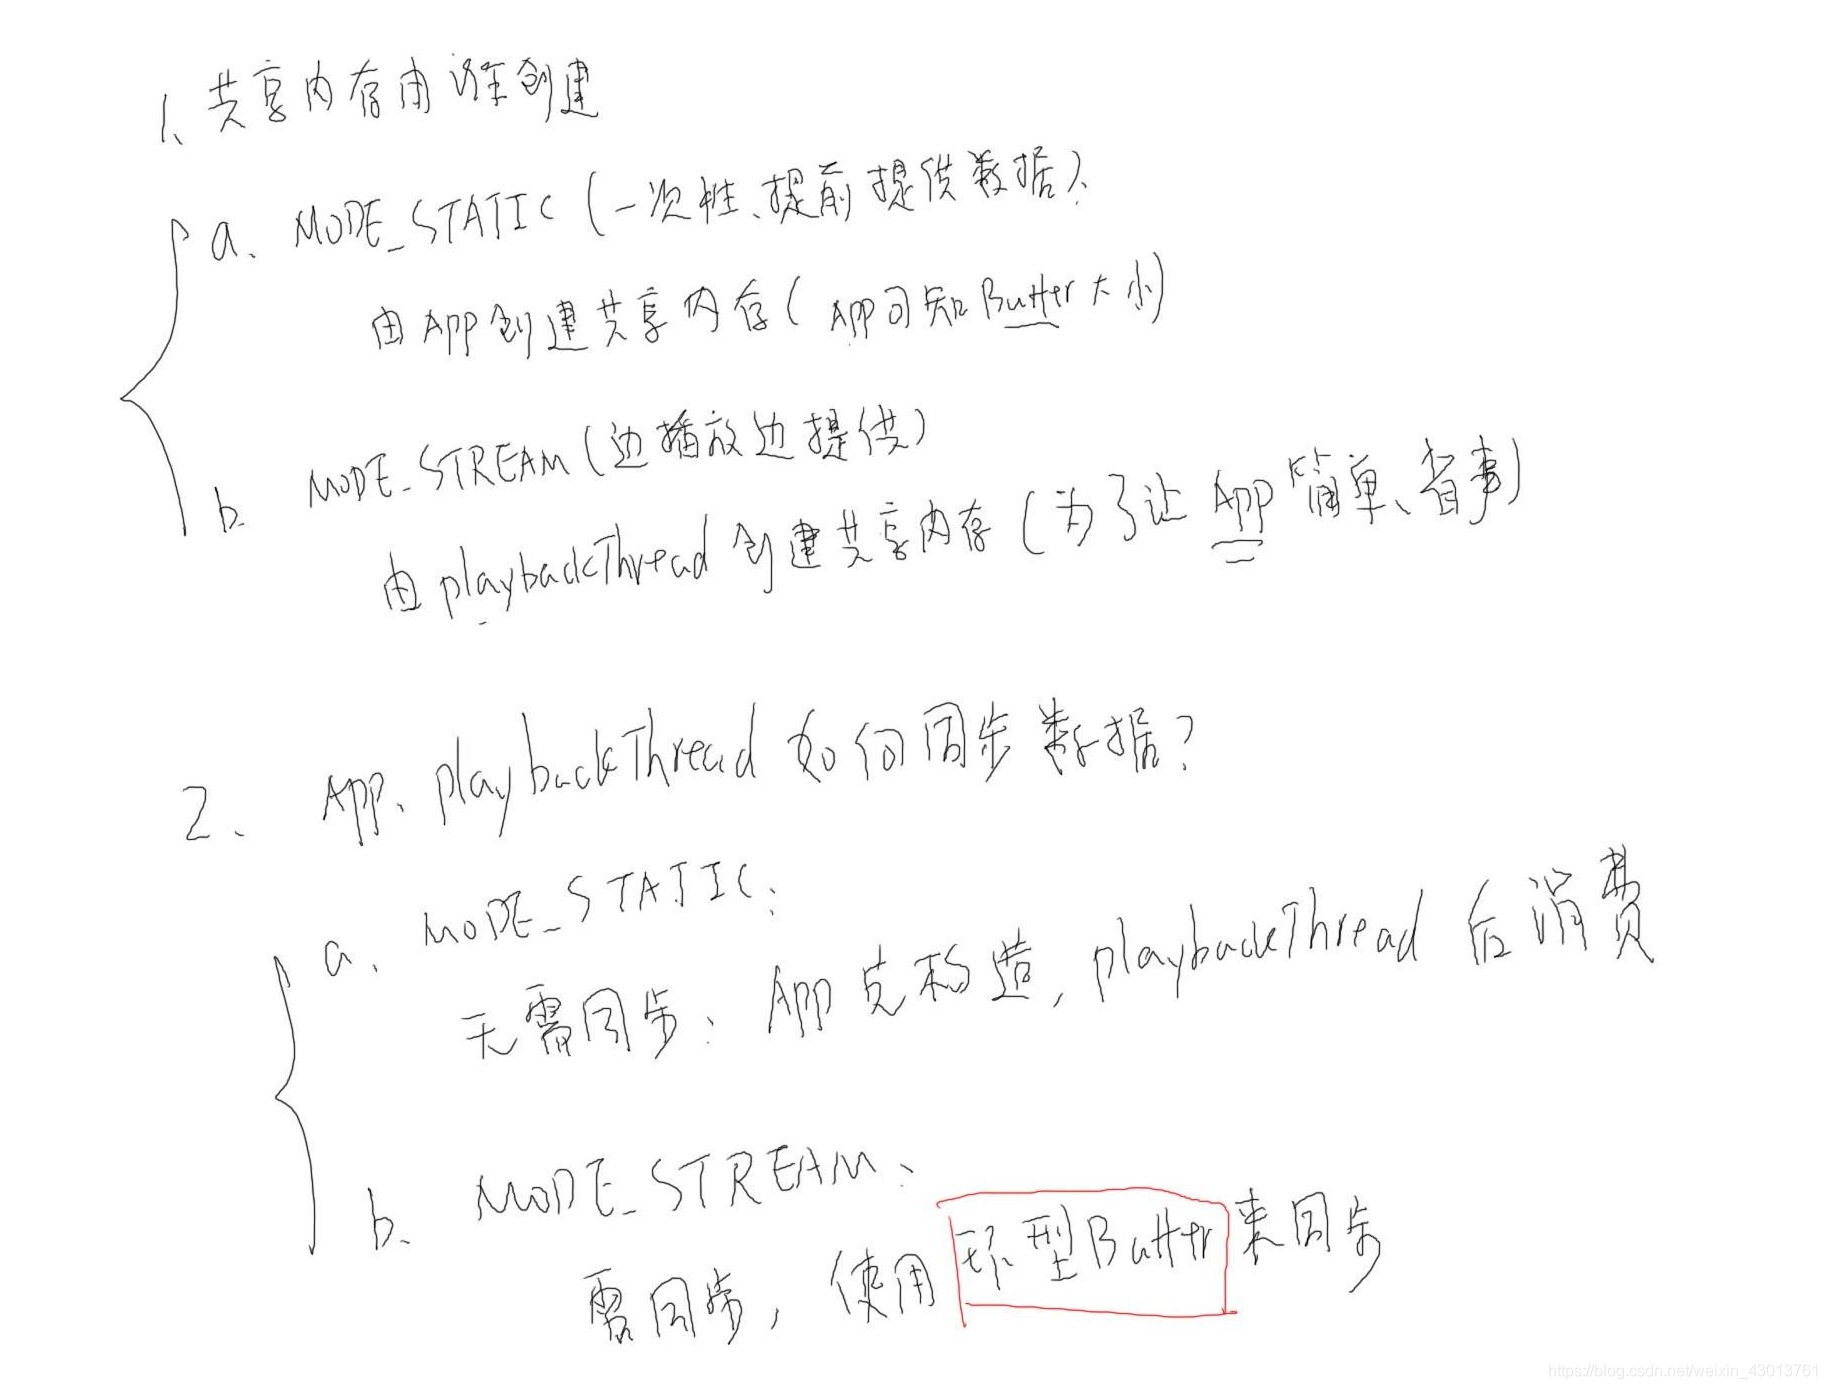 1、共享内存由谁创建
a、MODE_STATIC（一次性、提前提供数据）、
由App创建共享内存（App可知Buffer大小）
b、MODE_STREAM（边播放边提供）
由playbackThread创建共享内存（为了让App简单、省事）
2、App、playbackThread如何同步数据？
a、MODE_STATIC：
无需同步：App先构造，playbackThread后消费
b、MODE_STREAM：
需同步，使用环型Buffer来同步
https://blog.csdn.net/weixin_43013761